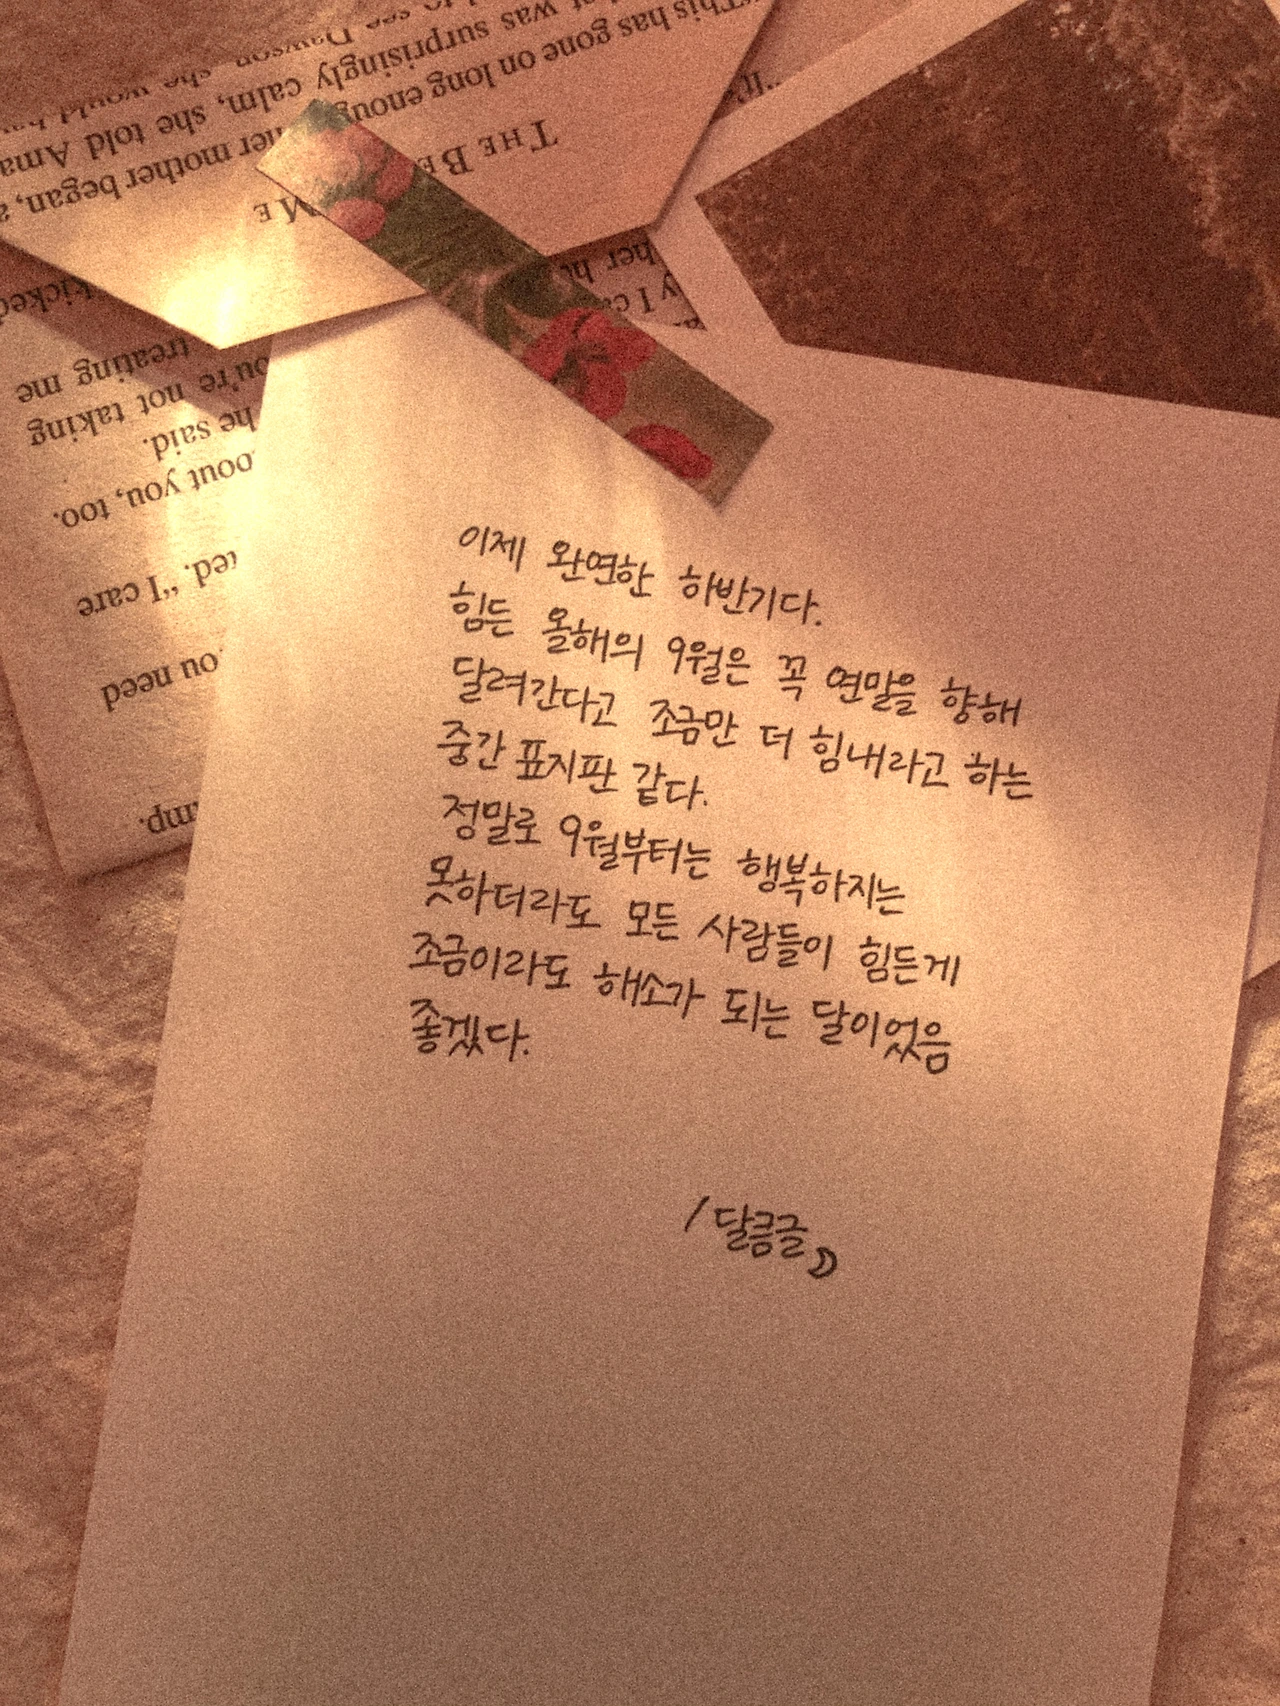 "This has gone on long enough
her mother began, a
was surprisingly calm, she told Ama
to see Dawson, she would ha
THE BE
ME
her h
y I c
kicked
treating me
ou're not taking
he said.
bout you, too.
ted. "I care
ou need
mp.
이제 완연한 하반기다.
힘든 올해의 9월은 꼭 연말을 향해
달려간다고 조금만 더 힘내라고 하는
중간 표지판 같다.
정말로 9월부터는 행복하지는
못하더라도 모든 사람들이 힘든게
조금이라도 해소가 되는 달이었음
좋겠다.
/달큼글